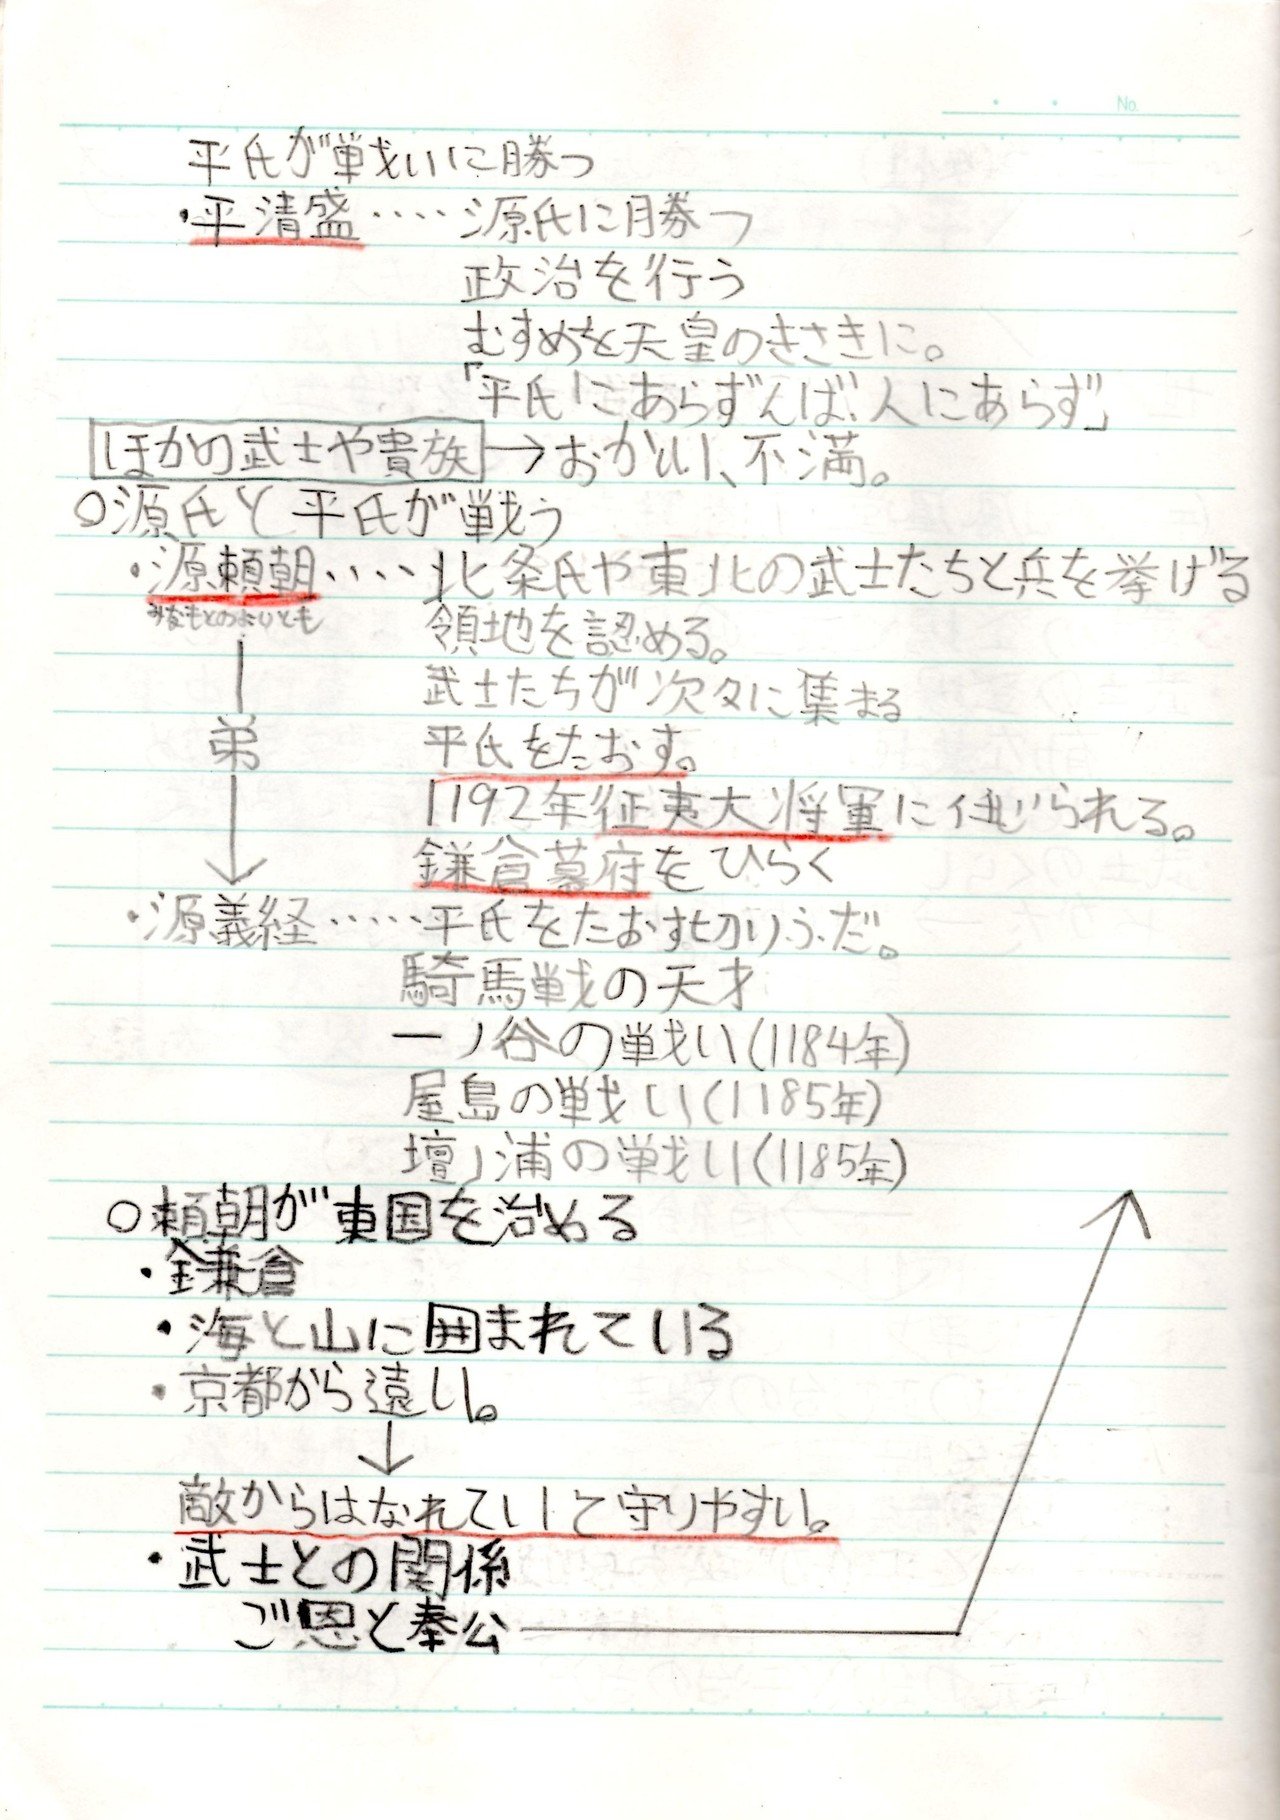 No.
平氏が戦いに勝つ
・平清盛‥‥源氏に勝つ
政治を行う
むすめを天皇のきさきに。
「平氏にあらずんば人にあらず」
ほかの武士や貴族→おかしい、不満。
○源氏と平氏が戦う
・源頼朝‥‥北条氏や東北の武士たちと兵を挙げる
みなもとのよりとも
領地を認める。
武士たちが次々に集まる
弟
平氏をたおす。
1192年征夷大将軍に任じられる。
鎌倉幕府をひらく
・源義経‥‥‥平氏をたおす切りふだ。
騎馬戦の天才
一ノ谷の戦い(1184年)
屋島の戦い(1185年)
壇ノ浦の戦い(1185年)
○頼朝が東国を治める
・鎌倉
・海と山に囲まれている
・京都から遠い。
↓
敵からはなれていて守りやすい。
・武士との関係
ご恩と奉公